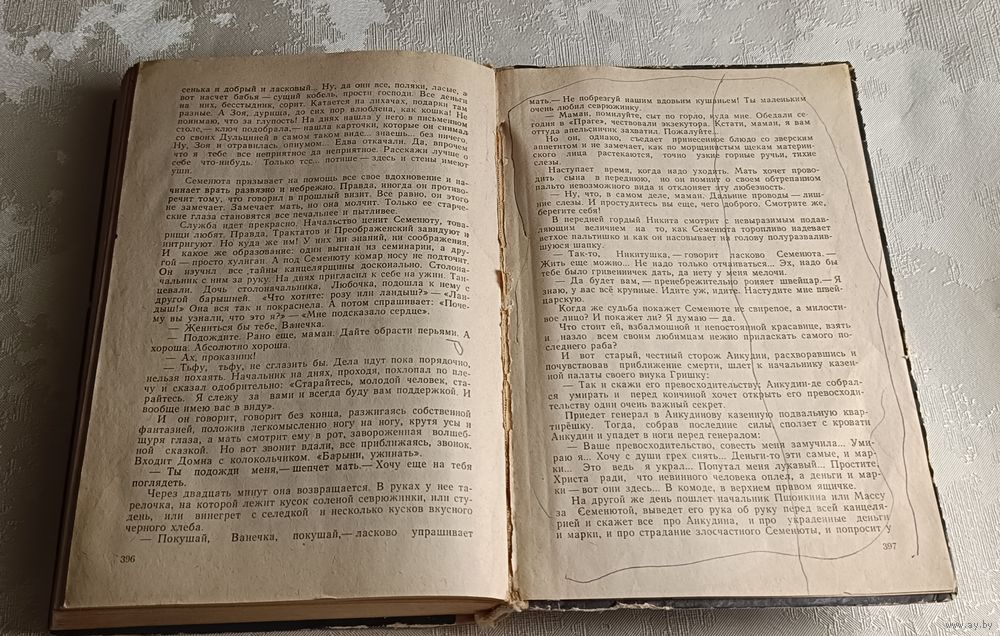 сенька я добрый и ласковый... Ну, да они все, поляки, ласые, а
вот насчет бабья — сущий кобель, прости господи. Все деньги
на них, бесстыдник, сорит. Катается на лихачах, подарки там
разные. А Зоя, дурища, до сих пор влюблена, как кошка! Не
понимаю, что за глупость! На днях нашла у него в письменном
столе,— ключ подобрала,— нашла карточки, которые он снимал
со своих Дульциней в самом таком виде... знаешь... без ничего.
Ну, Зоя и отравилась опиумом... Едва откачали. Да, впрочем,
что я тебе все неприятное да неприятное. Расскажи лучше о
себе что-нибудь. Только тсс... потише — здесь и стены имеют
уши.
Семенюта призывает на помощь все свое вдохновение и на-
чинает врать развязно и небрежно. Правда, иногда он противо-
речит тому, что говорил в прошлый визит. Все равно, он этого
не замечает. Замечает мать, но она молчит. Только ее старче-
ские глаза становятся все печальнее и пытливее.
Служба идет прекрасно. Начальство ценит Семенюту, това-
рищи любят. Правда, Трактатов и Преображенский завидуют и
интригуют. Но куда же им! У них ни знаний, ни соображения.
И какое же образование: один выгнан из семинарии, а дру-
гой — просто хулиган. А под Семенюту комар носу не подточит.
Он изучил все тайны канцелярщины досконально. Столона-
чальник с ним за руку. На днях пригласил к себе на ужин. Тан-
цевали. Дочь столоначальника, Любочка, подошла к нему с
другой барышней. «Что хотите: розу или ландыш?» — «Лан-
дыш!» Она вся так и покраснела. А потом спрашивает: «Поче-
му вы узнали, что это я?» — «Мне подсказало сердце».
— Жениться бы тебе, Ванечка.
— Подождите. Рано еще, маман. Дайте обрасти перьями. А
хороша. Абсолютно хороша.
— Ах, проказник!
— Тьфу, тьфу, не сглазить бы. Дела идут пока порядочно,
нельзя похаять. Начальник на днях, проходя, похлопал по пле-
чу и сказал одобрительно: «Старайтесь, молодой человек, ста-
райтесь. Я слежу за вами и всегда буду вам поддержкой. И
вообще имею вас в виду».
И он говорит, говорит без конца, разжигаясь собственной
фантазией, положив легкомысленно ногу на ногу, крутя усы и
щуря глаза, а мать смотрит ему в рот, завороженная волшеб-
ной сказкой. Но вот звонит вдали, все приближаясь, звонок.
Входит Домна с колокольчиком. «Барыни, ужинать».
— Ты подожди меня,— шепчет мать.— Хочу еще на тебя
поглядеть.
Через двадцать минут она возвращается. В руках у нее та-
релочка, на которой лежит кусок соленой севрюжинки, или сту-
день, или винегрет с селедкой и несколько кусков вкусного
черного хлеба.
— Покушай, Ванечка, покушай,— ласково упрашивает
396
мать.— Не побрезгуй нашим вдовьим кушаньем! Ты маленьким
очень любил севрюжинку.
— Маман, помилуйте, сыт по горло, куда мне. Обедали се-
годня в «Праге», чествовали экзекутора. Кстати, маман, я вам
оттуда апельсинчик захватил. Пожалуйте...
Но он, однако, съедает принесенное блюдо со зверским
аппетитом и не замечает, как по морщинистым щекам материн-
ского лица растекаются, точно узкие горные ручьи, тихие
слезы.
Наступает время, когда надо уходить. Мать хочет прово-
дить сына в переднюю, но он помнит о своем обтрепанном
пальто невозможного вида и отклоняет эту любезность.
— Ну, что, в самом деле, маман. Дальние проводы — лиш-
ние слезы. И простудитесь вы еще, чего доброго. Смотрите же,
берегите себя!
В передней гордый Никита смотрит с невыразимым подав-
ляющим величием на то, как Семенюта торопливо надевает
ветхое пальтишко и как он насовывает на голову полуразвалив-
шуюся шапку.
— Так-то, Никитушка,— говорит ласково Семенюта.—
Жить еще можно... Не надо только отчаиваться... Эх, надо бы
тебе было гривенничек дать, да нету у меня мелочи.
— Да будет вам,— пренебрежительно роняет швейцар.— Я
знаю, у вас всё крупные. Идите уж, идите. Настудите мне швей-
царскую.
Когда же судьба покажет Семенюте не свирепое, а милости-
вое лицо? И покажет ли? Я думаю — да.
Что стоит ей, взбалмошной и непостоянной красавице, взять
и назло всем своим любимцам нежно приласкать самого по-
следнего раба?
И вот старый, честный сторож Анкудин, расхворавшись и
почувствовав приближение смерти, шлет к начальнику казен-
ной палаты своего внука Гришку:
— Так и скажи его превосходительству: Анкудин-де собрал-
ся умирать и перед кончиной хочет открыть его превосходи-
тельству один очень важный секрет.
Приедет генерал в Анкудинову казенную подвальную квар-
тирёшку. Тогда, собрав последние силы, сползет с кровати
Анкудин и упадет в ноги перед генералом:
— Ваше превосходительство, совесть меня замучила... Уми-
раю я... Хочу с души грех снять... Деньги-то эти самые, и мар-
ки... Это ведь я украл... Попутал меня лукавый... Простите,
Христа ради, что невинного человека оплел, а деньги и мар-
ки — вот они здесь... В комоде, в верхнем правом ящичке.
На другой же день пошлет начальник Пшонкина или Массу
за Семенютой, выведет его рука об руку перед всей канцеля-
рией и скажет все про Анкудина, и про украденные деньги
и марки, и про страдание злосчастного Семенюты, и попросит у
397
www.ay.by